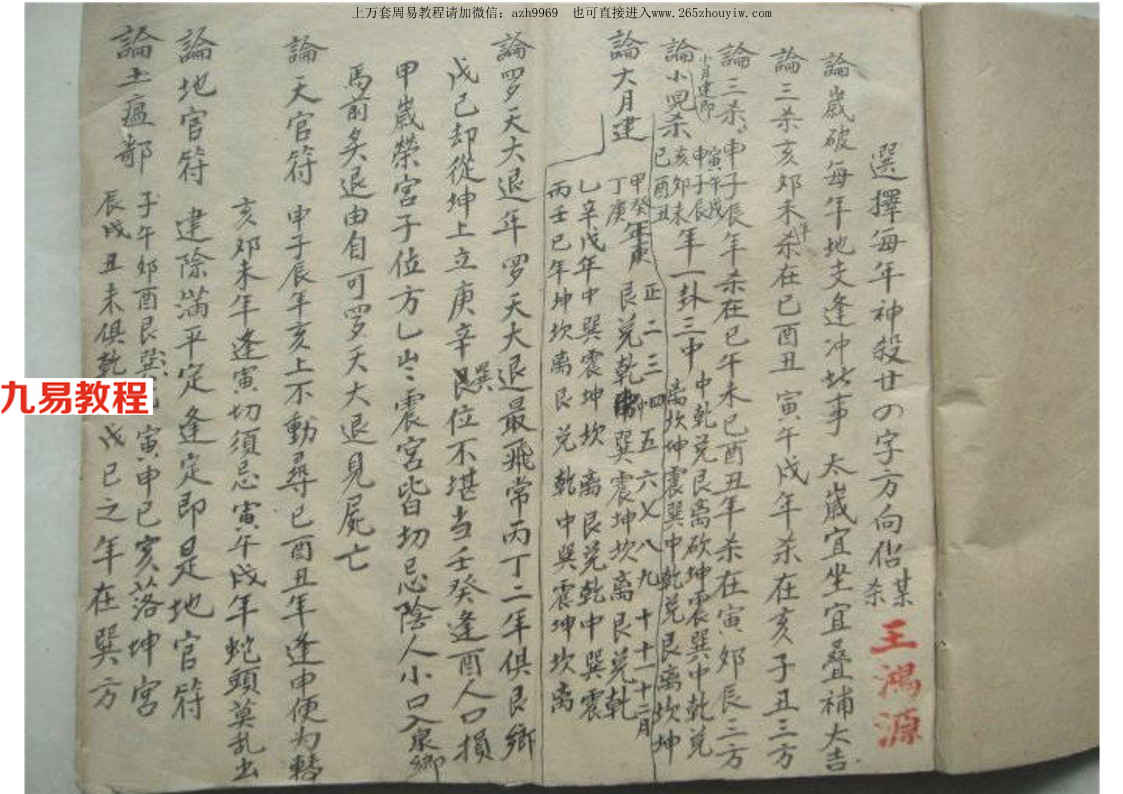 上万套周易教程请加微信：azh9969　也可直接进入www.265zhouyiw.com
選擇每年神殺廿の字方向佔某杀
王鴻源
論歲破每年地支逢冲此事太歲宜坐宜叠補大吉
論三杀亥卯未年杀在巳酉丑寅午戌年杀在亥子丑三方
論三杀申子辰年杀在巳午未巳酉丑年杀在寅卯辰三方
小月建即
論小児杀
寅午戌
申子辰
亥卯未
巳酉丑
年一卦三中
中乾兑艮离砍坤震巽中乾兑
离坎坤震巽中乾兑艮离坎坤
論大月建
正二三四五六七八九十十一十二月
甲癸
丁庚
年
艮兑乾中巽震坤坎离艮兑乾
乙辛戊年中巽震坤坎离艮兑乾中巽震
丙壬己年坤坎离艮兑乾中巽震坤坎离
論罗天大退年罗天大退最飛常丙丁二年俱艮鄉
戊己却從坤上立庚辛巽位不堪当壬癸逢酉人口損
甲歲榮宮子位方乙山震宮皆切忌陰人小口入泉鄉
馬前矣退由自可罗天大退見屍亡
論天官符申子辰年亥上不動尋巳酉丑年逢申便为轉
亥卯未年逢寅切須忌寅午戌年蛇頭莫乱出
論地官符建除满平定逢定即是地官符
論土瘟部
子午卯酉艮巽
寅申巳亥落坤宮
辰戌丑未俱乾
戊己之年在巽方
九易教程